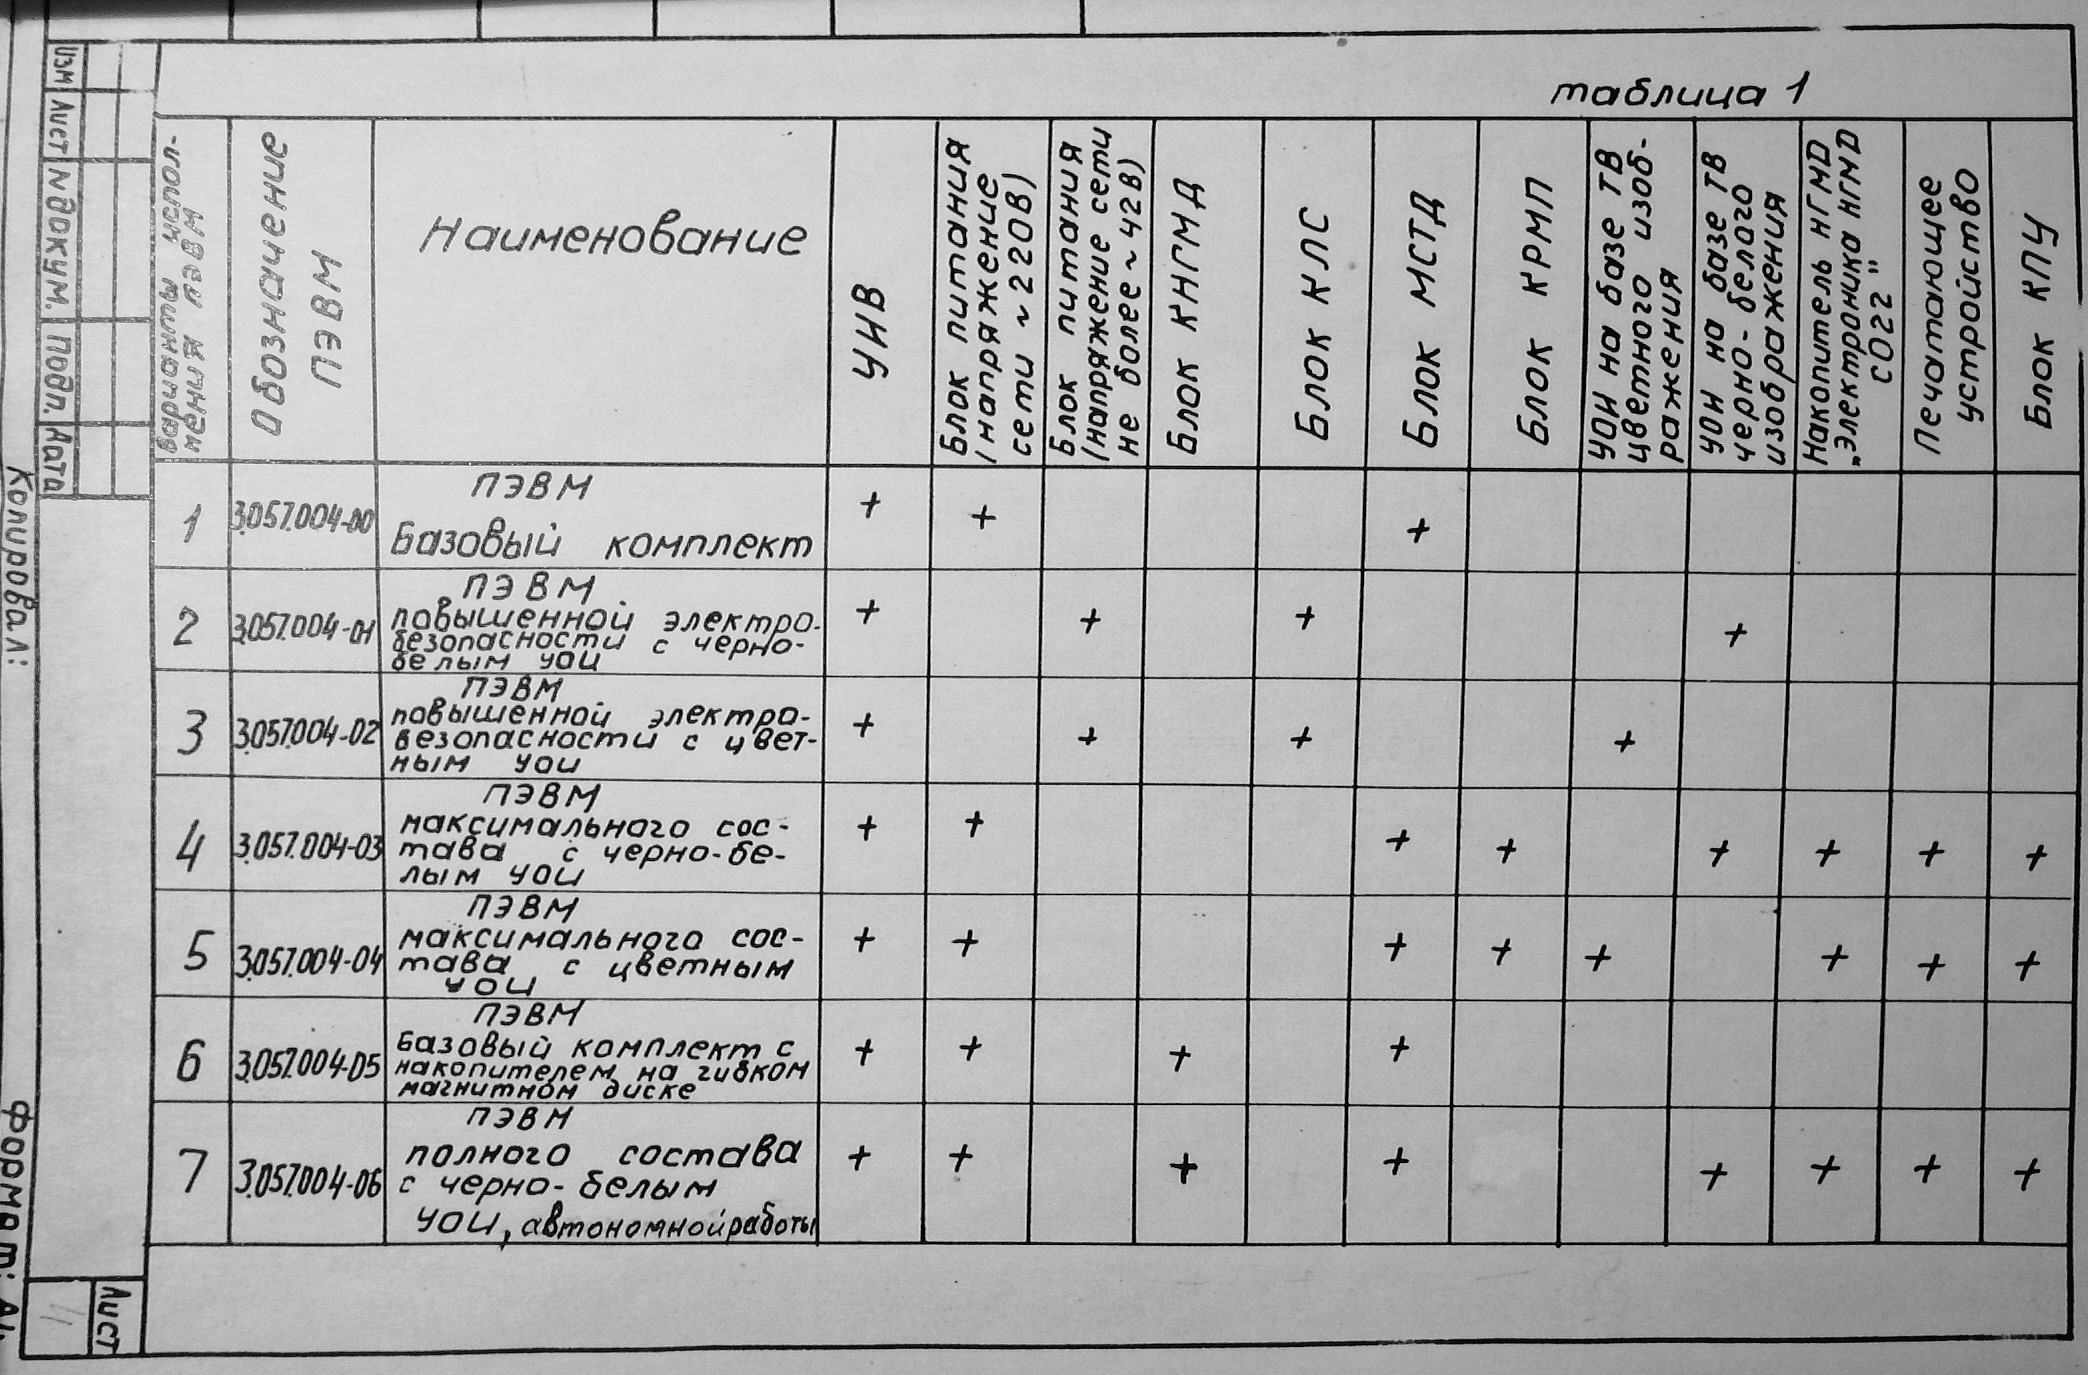 таблица 1
варианты испол-
нения ПЭВМ
Обозначение
ПЭВМ
Наименование
УНВ
Блок питания
(напряжение
сети ~220В)
Блок питания
(напряжение сети
не более ~42В)
Блок КНГМД
Блок КЛС
Блок МСТД
Блок КРМП
УОИ на базе ТВ
цветного изоб-
ражения
УОИ на базе ТВ
черно-белого
изображения
Накопитель НГМД
„Электроника НГМД
6022"
Печатающее
устройство
Блок КПУ
1 3.057.004-00 ПЭВМ + + +
Базовый комплект
2 3.057.004-01 ПЭВМ + + + +
повышенной электро-
безопасности с черно-
белым УОИ
3 3.057.004-02 ПЭВМ + + + +
повышенной электро-
безопасности с цвет-
ным УОИ
4 3.057.004-03 ПЭВМ + + + + + + + +
максимального сос-
тава с черно-бе-
лым УОИ
5 3.057.004-04 ПЭВМ + + + + + + + +
максимального сос-
тава с цветным
УОИ
6 3.057.004-05 ПЭВМ + + + +
Базовый комплект с
накопителем на гибком
магнитном диске
7 3.057.004-06 ПЭВМ + + + + + + + +
полного состава
с черно-белым
УОИ, автономной работы
Изм Лист N докум. Подп. Дата
Копировал:
Формат:
Лист